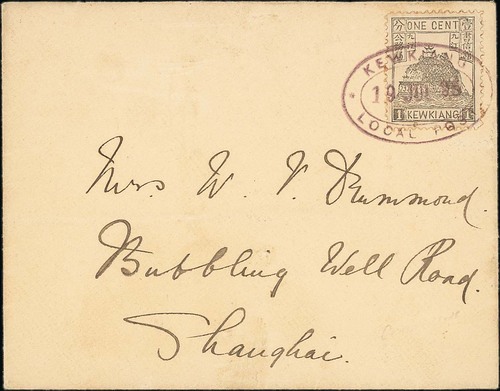 ONE CENT
KEWKIANG
19 JUL 95
LOCAL POST
1 KEWKIANG 1
Mrs. W. V. Drummond.
Bubbling Well Road.
Shanghai.